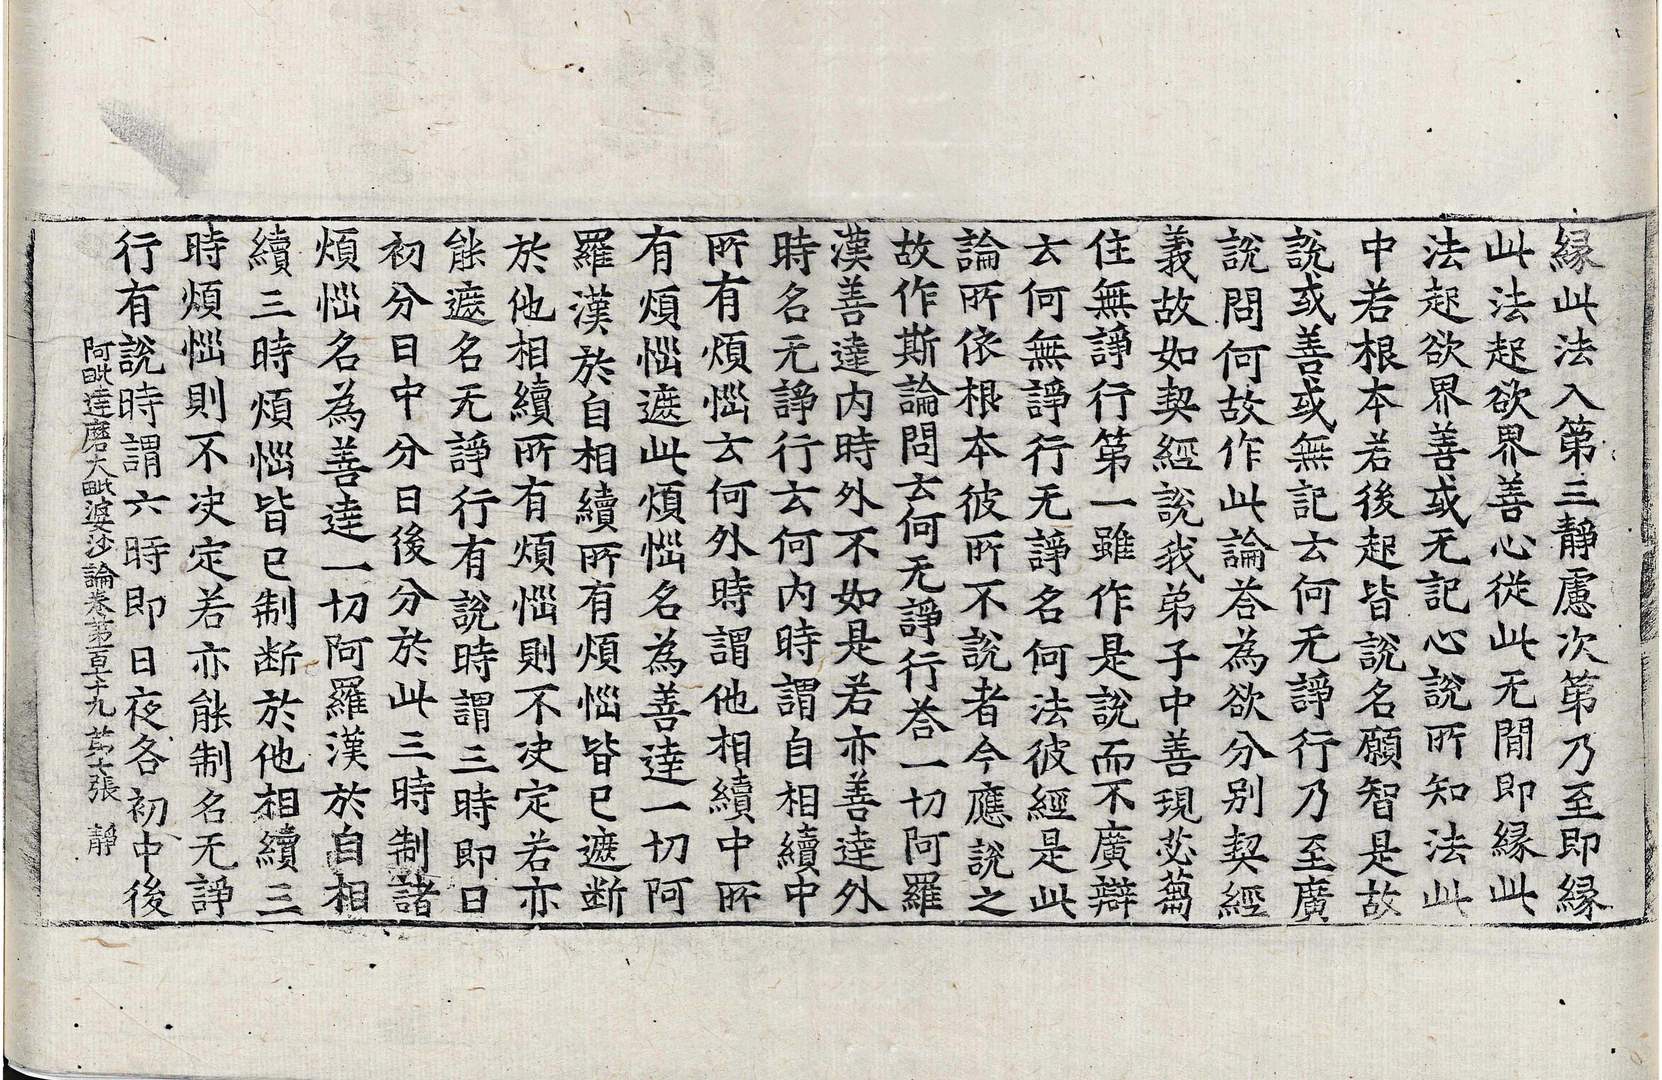 縁此法入第三靜慮次第乃至即縁
此法起欲界善心從此无閒即縁此
法起欲界善或无記心說所知法此
中若根本若後起皆說名願智是故
說或善或無記云何无諍行乃至廣
說問何故作此論荅為欲分別契經
義故如契經說我弟子中善現苾蒭
住無諍行第一雖作是說而不廣辯
云何無諍行无諍名何法彼經是此
論所依根本彼所不說者今應說之
故作斯論問云何无諍行荅一切阿羅
漢善達内時外不如是若亦善達外
時名无諍行云何内時謂自相續中
所有煩惱云何外時謂他相續中所
有煩惱遮此煩惱名為善達一切阿
羅漢於自相續所有煩惱皆已遮断
於他相續所有煩惱則不决定若亦
能遮名无諍行有說時謂三時即日
初分日中分日後分於此三時制諸
煩惱名為善達一切阿羅漢於自相
續三時煩惱皆已制断於他相續三
時煩惱則不决定若亦能制名无諍
行有說時謂六時即日夜各初中後
阿毗達磨大毗婆沙論卷第一百七十九 第七張 靜